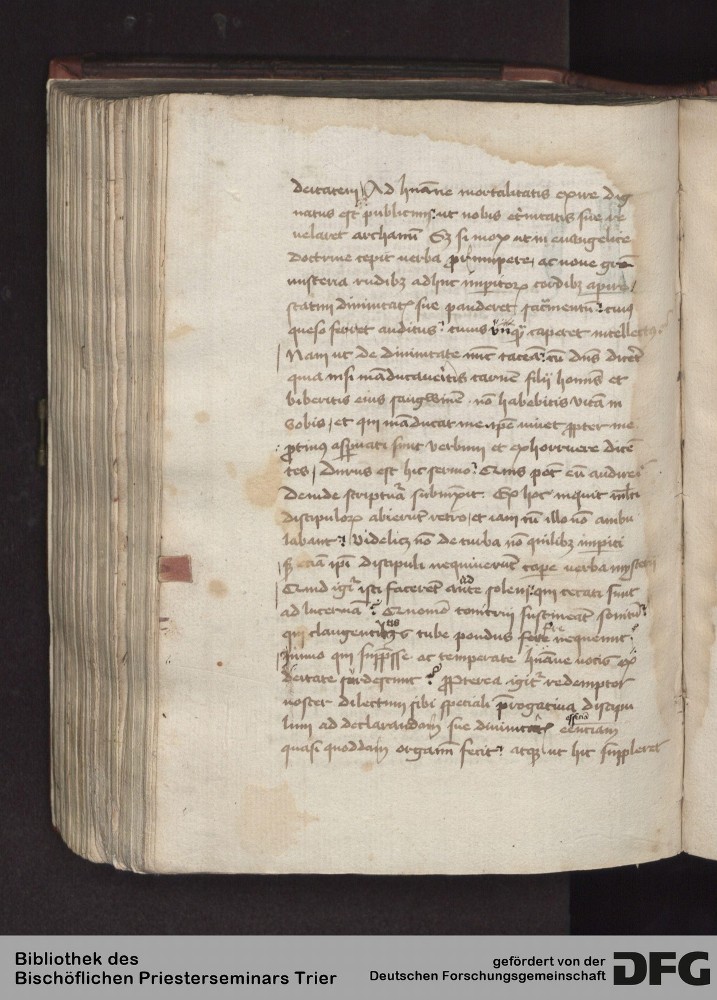 deitatem Ad hu̅ane mortalitatis exire dig
natus est publicum: ut nobis et̅nitatis sue re
velaret archanu̅ Sz si mox ut in euuangelice
doctrine cepit verba prorumpere, ac noue gr̅e
misteria rudibz adhuc cordibz apire
statim diuinitat sue panderet sacr̅mentu̅: cuius
queso ferret auditus? cuius caperet intellectus?
Nam ut de diuinitate nu̅c tacea̅: cu̅ dn̅s dicer̅t
quia nisi ma̅ducaueritis carne̅ filij hominis et
biberitis eius sangwine̅ no̅ habebitis vita̅ in
vobis, et qui ma̅ducat me ip̅e viuet p̅pter me
protinus aspernati sunt verbum et exhorruere dice̅
tes, Durus est hic sermo: Quis pot̅ eu̅ audire?
Deinde scriptura subiunxit. Ex hoc inquit m̅lti
discipulorꝝ abierut̅ retro, et iam cu̅ illo no̅ ambu
labant? Videlicz no̅ de turba no̅ quilibz impiti
sz etia̅ ip̅i discipuli nequiuerunt cape̅ verba mysterij
Quid igit̅ isti facere̅t ad solem: qui cecati sunt
ad lucerna̅? Quomo̅ tonitrui sustineant sonitu̅?
qui clangentis tube pondus ferre nequeunt?
Immo qui suppresse ac temperate hu̅ane vocis ex
deitate surdescunt? Propterea igit̅ redemptor
noster dilectum sibi speciali p̅rogatiua discipu
lum ad declarandam sue diuinitat̅ essencia̅ eenciam
quasi quoddam organu̅ fecit: atqz ut hic suppleret
Bibliothek des
Bischöflichen Priesterseminars Trier
gefördert von der
Deutschen Forschungsgemeinschaft
DFG